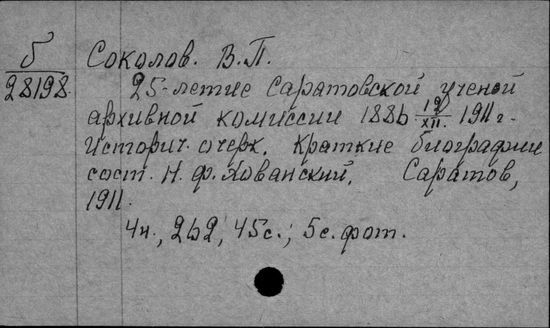 б
28198
Соколов. В.П.
25-летие Саратовской ученой
архивной комиссии 1886 12/XII. 1911 г.
Историч. очерк. Краткие биографии
сост. Н.Ф. Хованский. Саратов,
1911.
4н., 262, 45с.; 5с. фот.